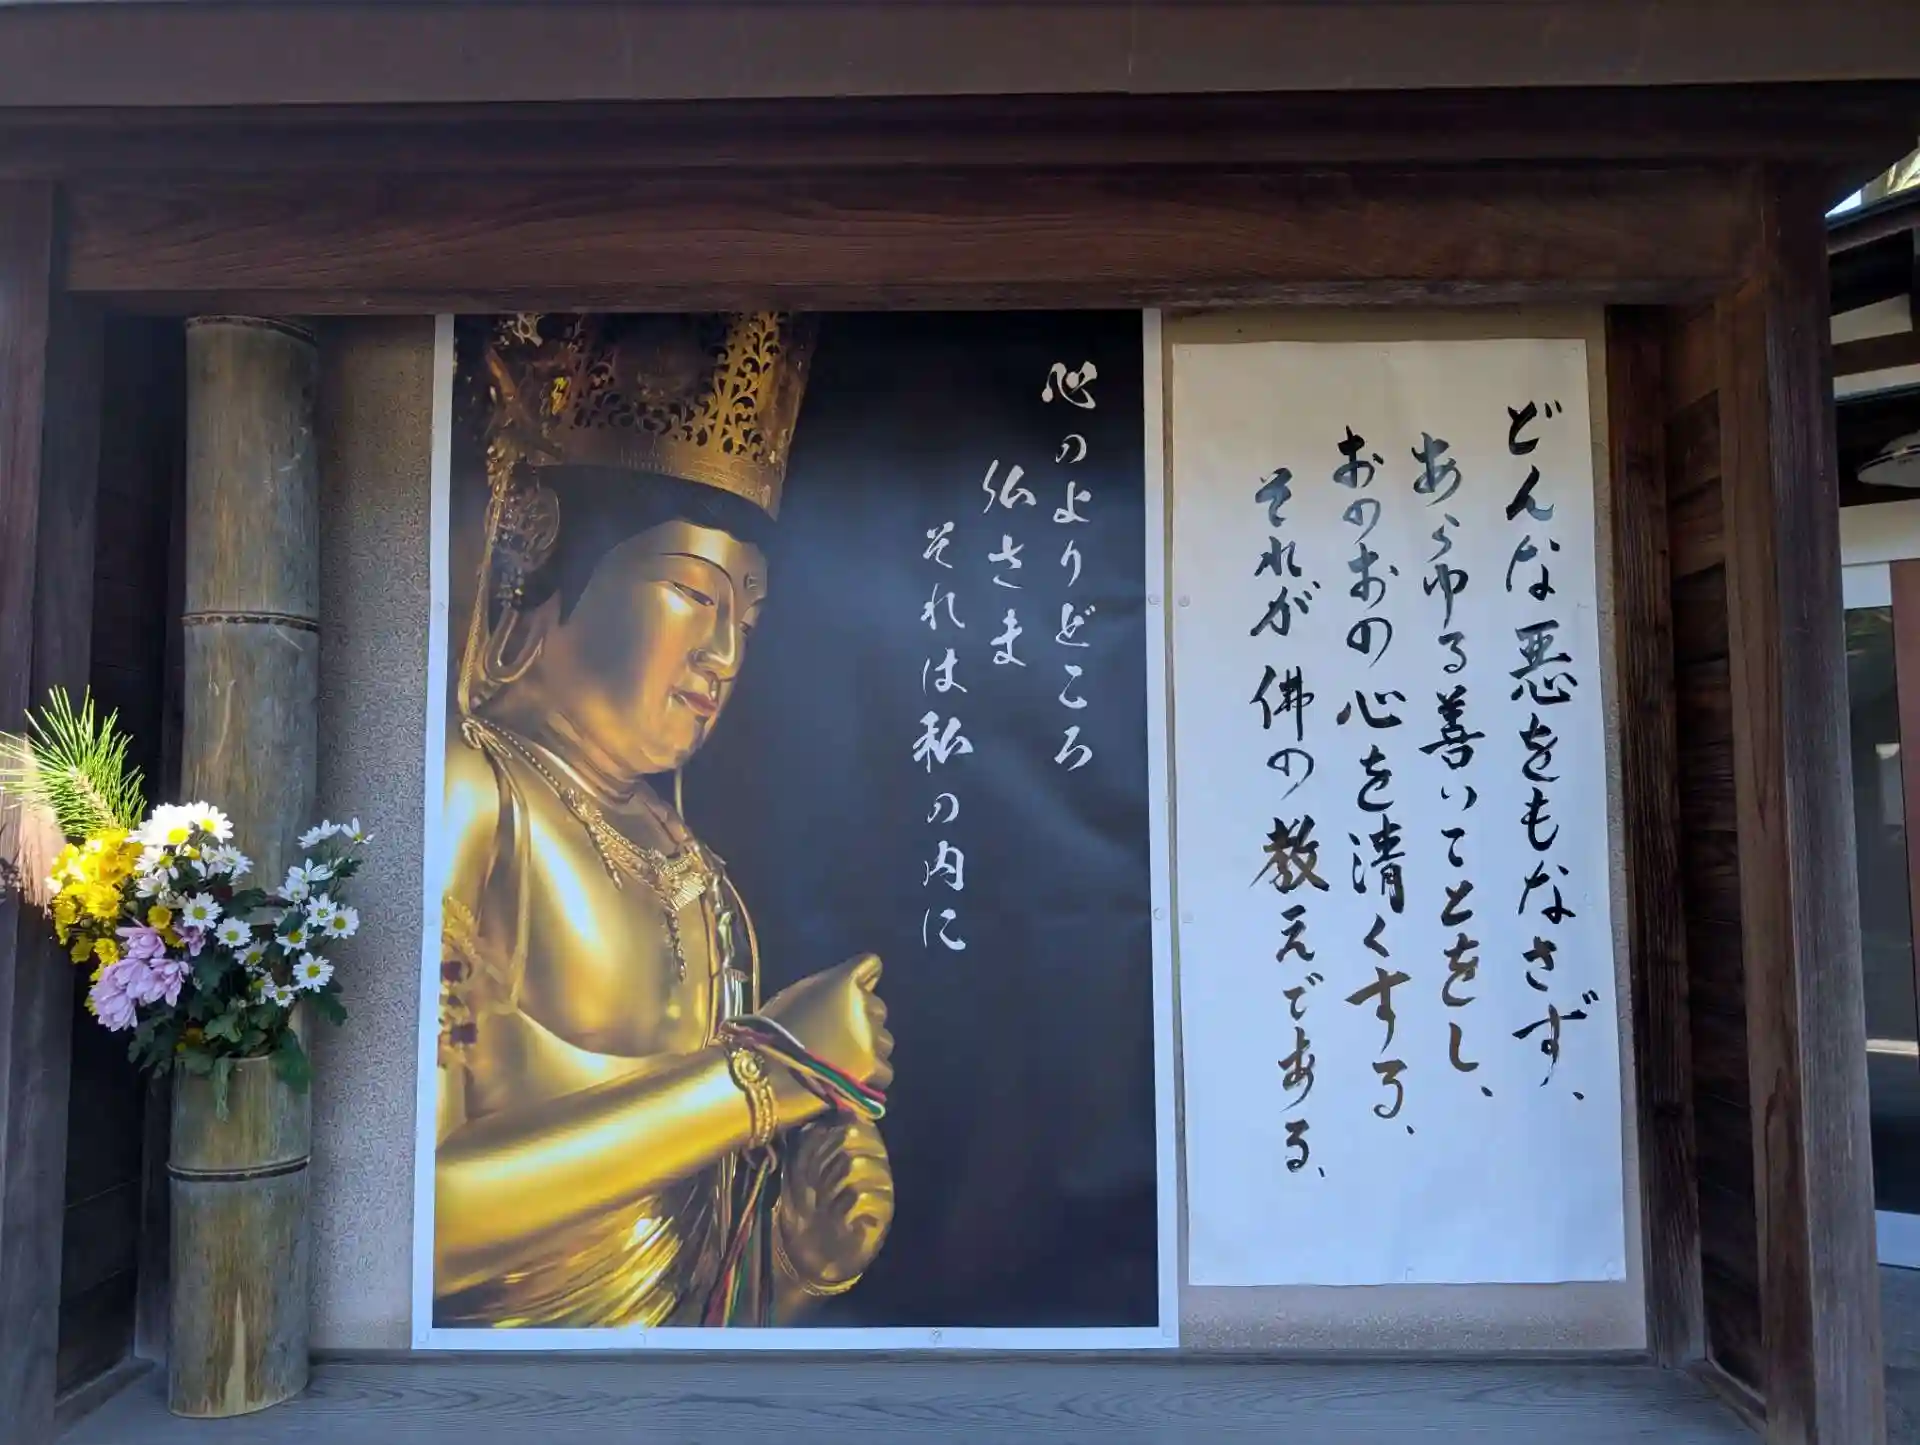 どんな悪をもなさず、
あらゆる善いことをし、
おのおのの心を清くする、
それが佛の教えである、
心のよりどころ
仏さま
それは私の内に